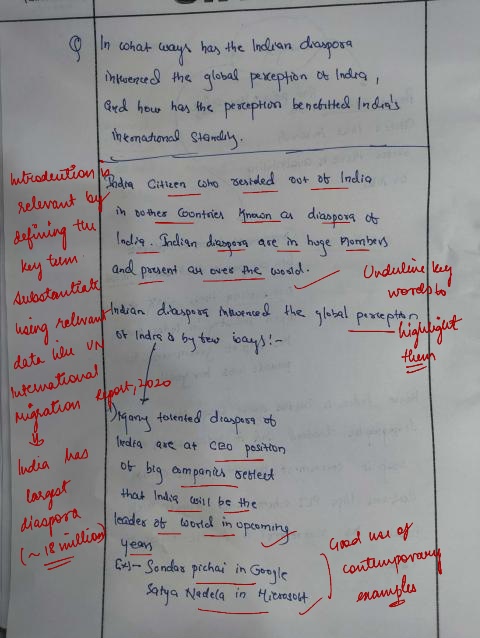 Q In what ways has the Indian diaspora
influenced the global perception of India,
and how has the perception benefitted India's
international standing.
India Citizen who resided out of India
in other countries known as diaspora of
India. Indian diaspora are in huge numbers
and present all over the world.
Indian diaspora influenced the global perception
of India is by few ways:-
1) Many talented diaspora of
India are at CEO position
of big companies reflect
that India will be the
leader of world in upcoming
years
Ex:- Sundar pichai in Google
Satya Nadela in Microsoft
Introduction is
relevant by
defining the
key term.
Substantiate
using relevant
data like UN
International
Migration Report, 2020
India has
largest
diaspora
(~18 million)
Underline key
words to
highlight
them
Good use of
contemporary
examples